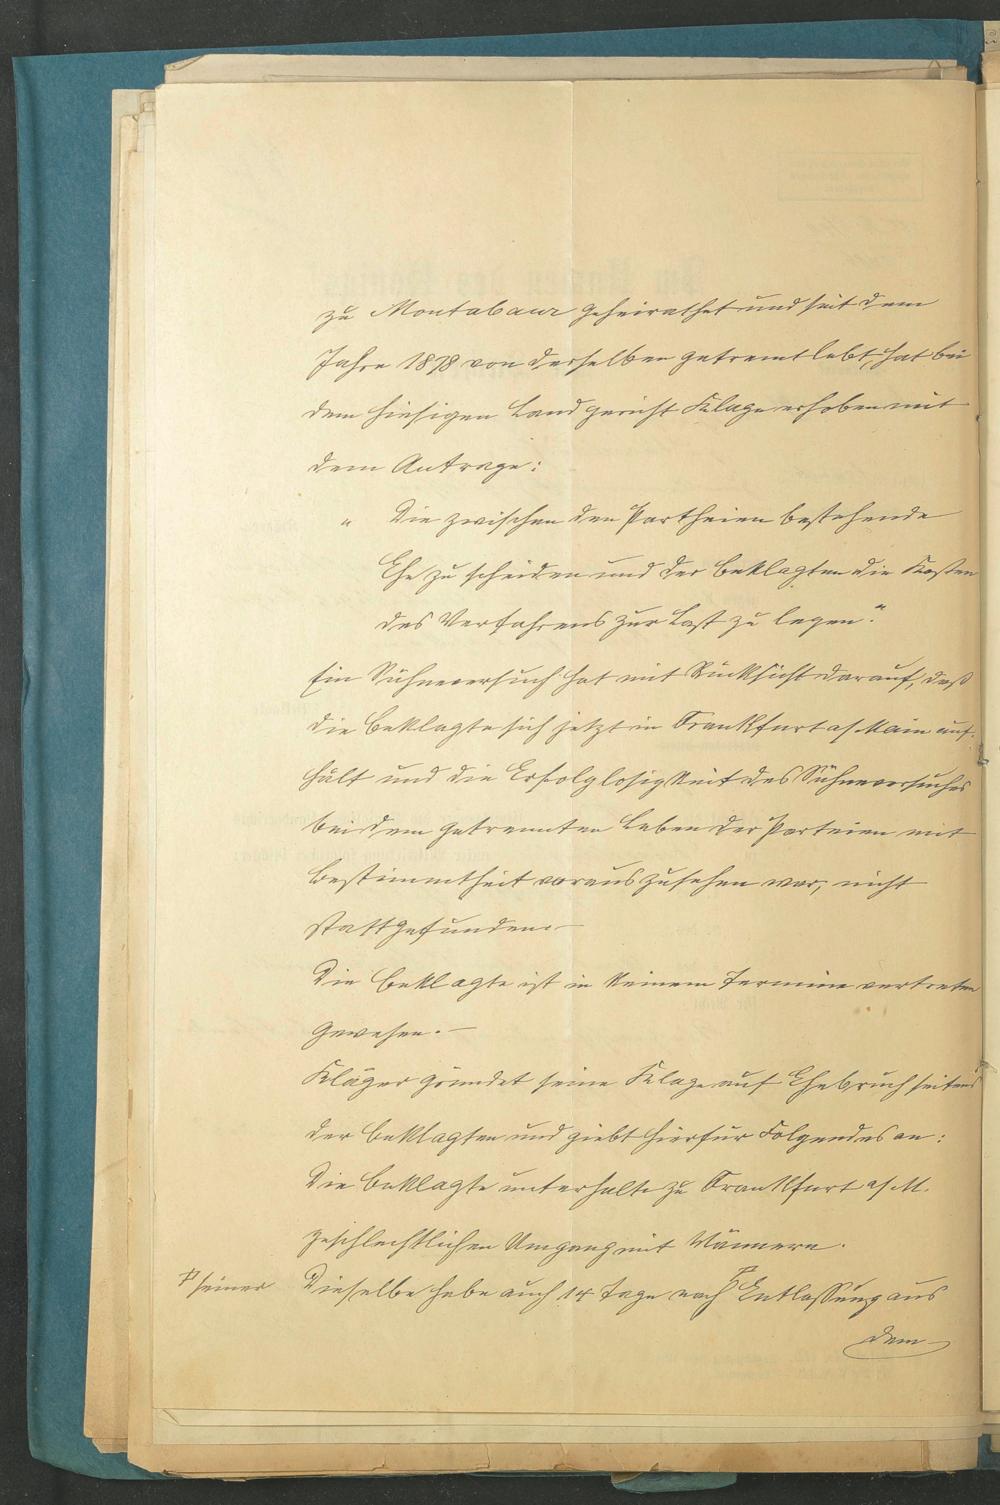 zu Montabaur geheirathet und seit dem
Jahre 1878 von derselben getrennt lebt, hat bei
dem hiesigen Landgericht Klage erhoben mit
dem Antrage:
„ Die zwischen den Partheien bestehende
Ehe zu scheiden und der Beklagten die Kosten
des Verfahrens zur Last zu legen."
Ein Sühneversuch hat mit Rücksicht darauf, daß
die Beklagte sich jetzt in Frankfurt a/Main auf-
hält und die Erfolglosigkeit des Sühneversuches
bei dem getrennten Leben der Parteien mit
Bestimmtheit vorauszusehen war, nicht
stattgefunden.-
Die Beklagte ist in keinem Termine vertreten
gewesen.-
Kläger gründet seine Klage auf Ehebruch seitens
der Beklagten und giebt hierfür Folgendes an:
Die Beklagte unterhalte zu Frankfurt a/M.
geschlechtlichen Umgang mit Männern.
Dieselbe habe auch 14 Tage nach Entlassung aus
seiner
dem